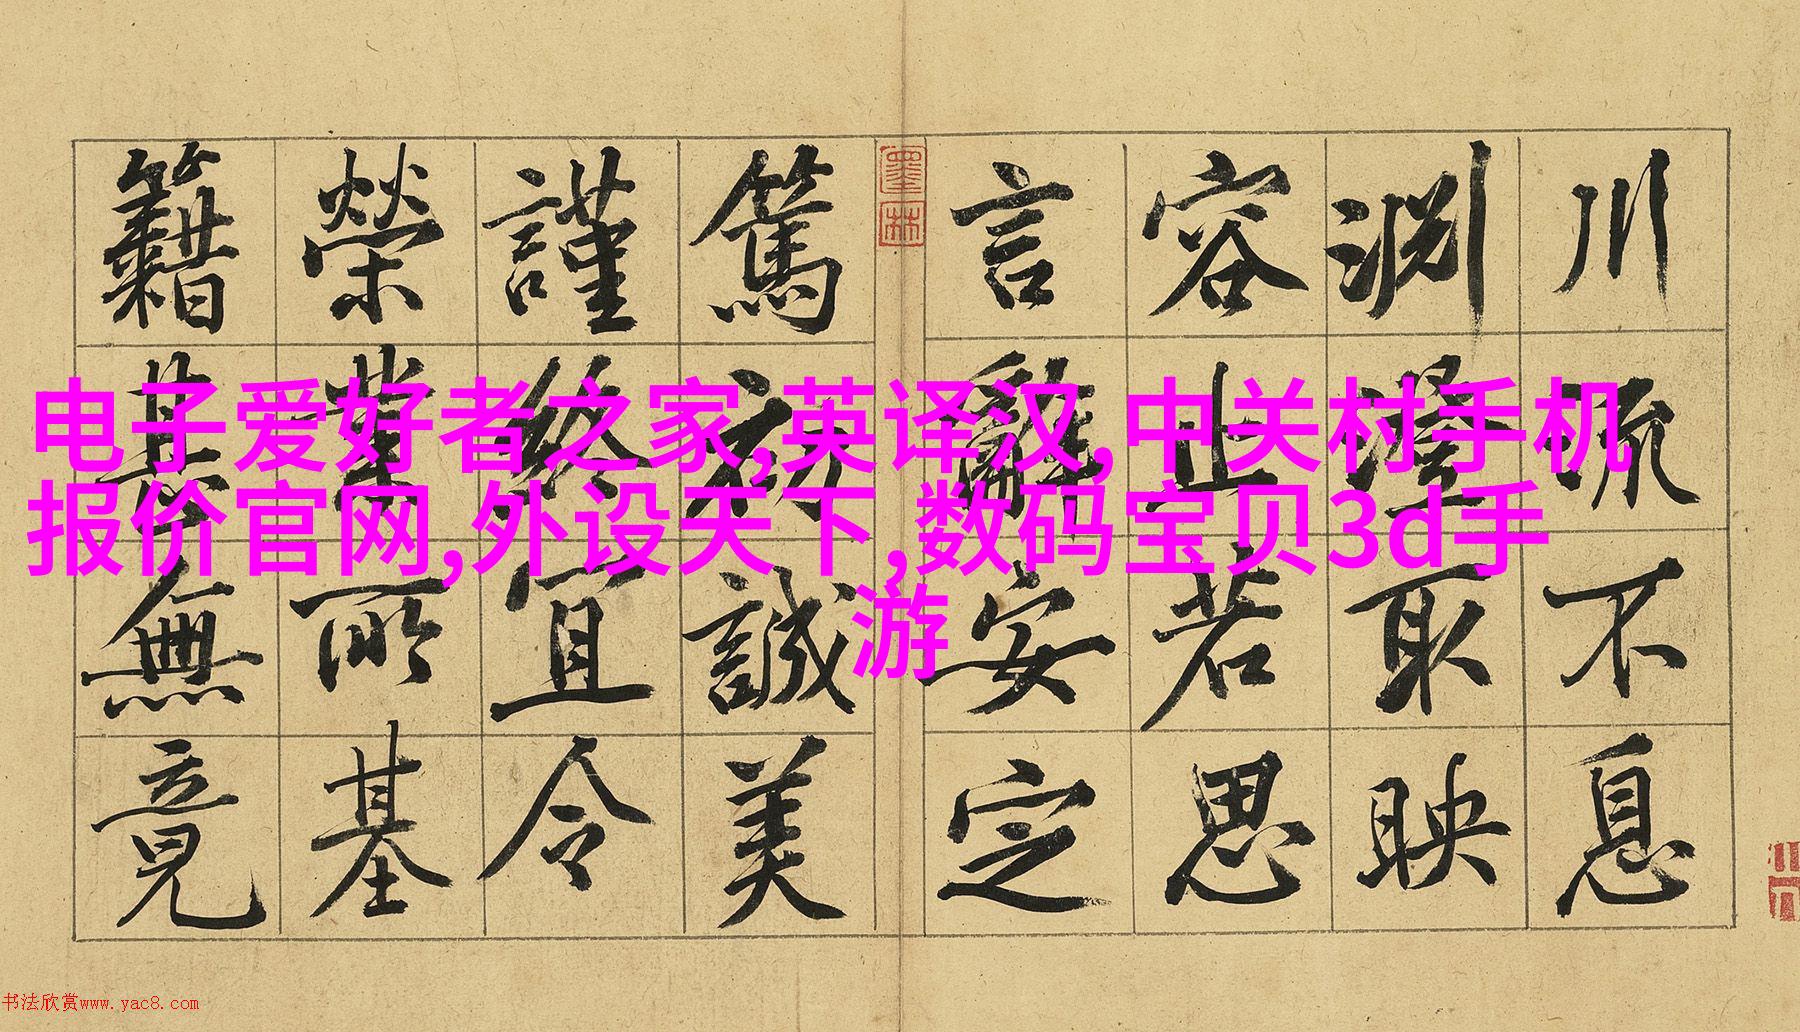 电子爱好者之家,英译汉,中关村手机
报价官网,外设天下,数码宝贝3d手
游
川流不息
淵澄取映
容止若思
言辭安定
墨林
篤初誠美
謹終宜令
榮業所基
籍甚無竟
书法欣赏www.yac8.com